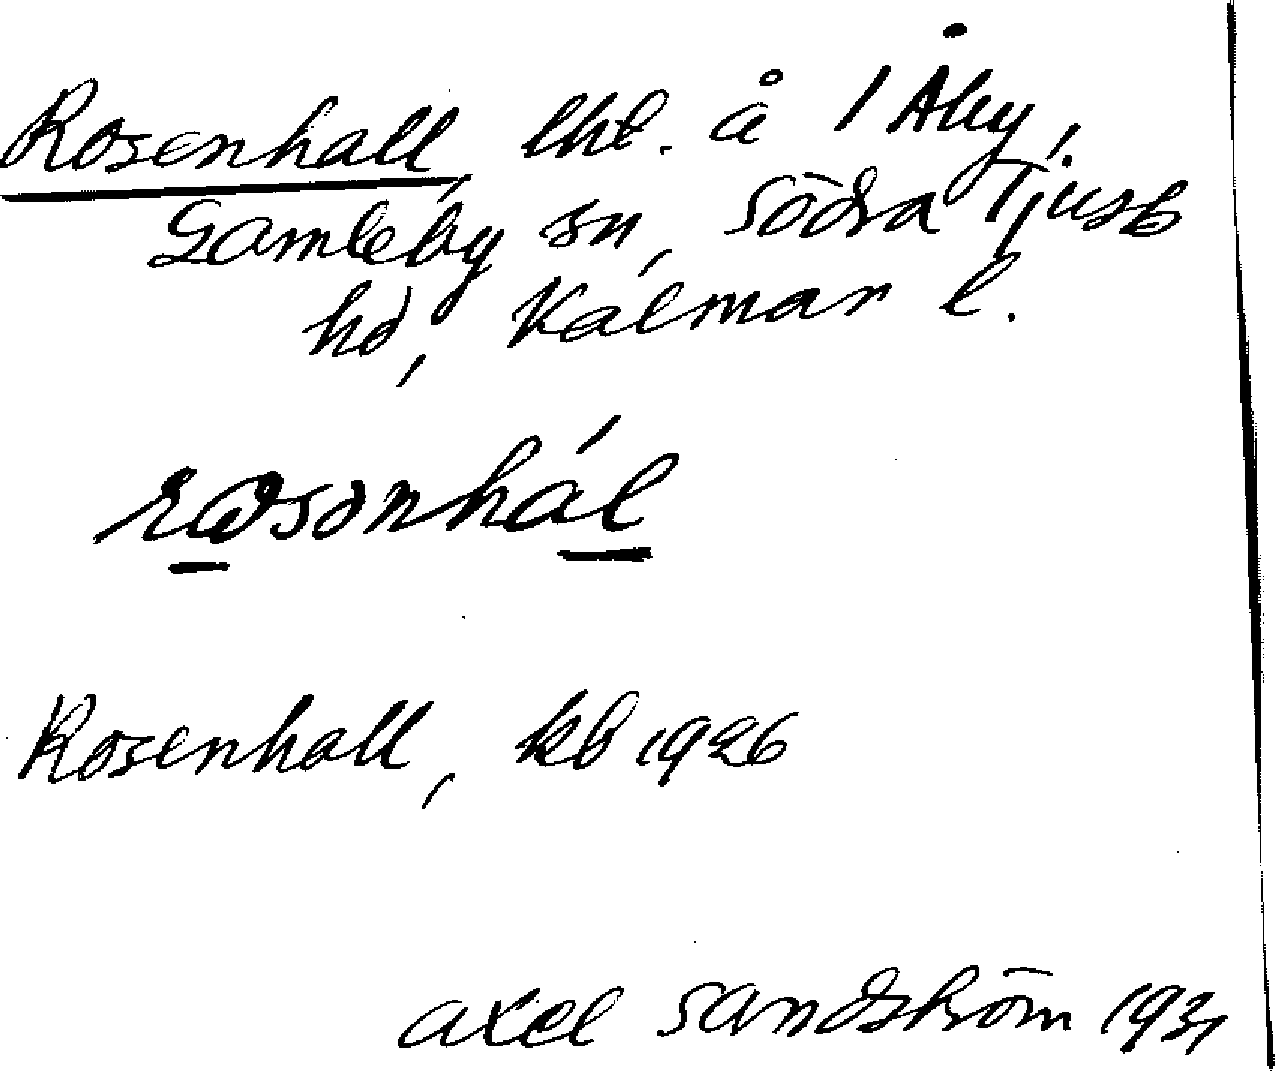 Rosenhall, lht. å 1 Åby,
Gamleby sn, Södra Tjust
hd, Kalmar l.
Rosenhall, kb 1926
Axel Sandström 1931